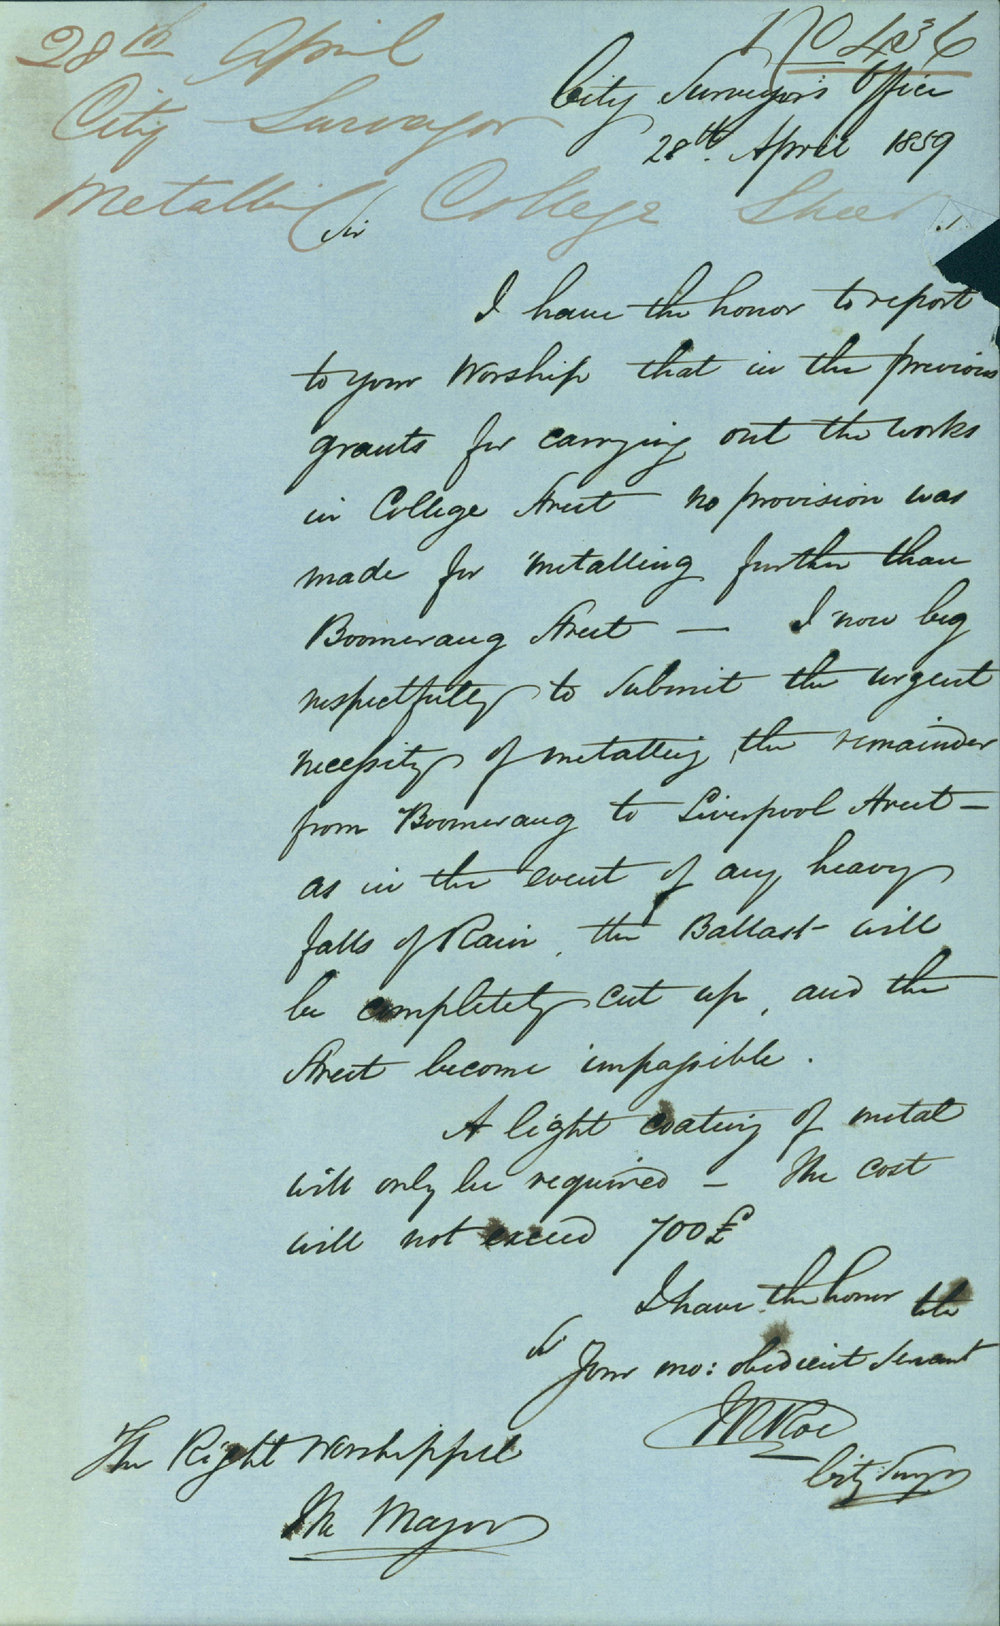 28th April
No 436
City Surveyor's Office
City Surveyor
28th. April 1859
Metalling College Street
Sir
I have the honor to report
to your Worship that in the previous
grants for carrying out the works
in College Street no provision was
made for metalling further than
Boomerang Street — I now beg
respectfully to submit the urgent
necessity of metalling the remainder
from Boomerang to Liverpool Street —
as in the event of any heavy
falls of Rain, the Ballast will
be completely cut up, and the
Street become impassible.
A light coating of metal
will only be required — The cost
will not exceed 700£
I have the honor to be
Sir
Your mo: obedient Servant
The Right Worshipful
City Survr
The Mayor